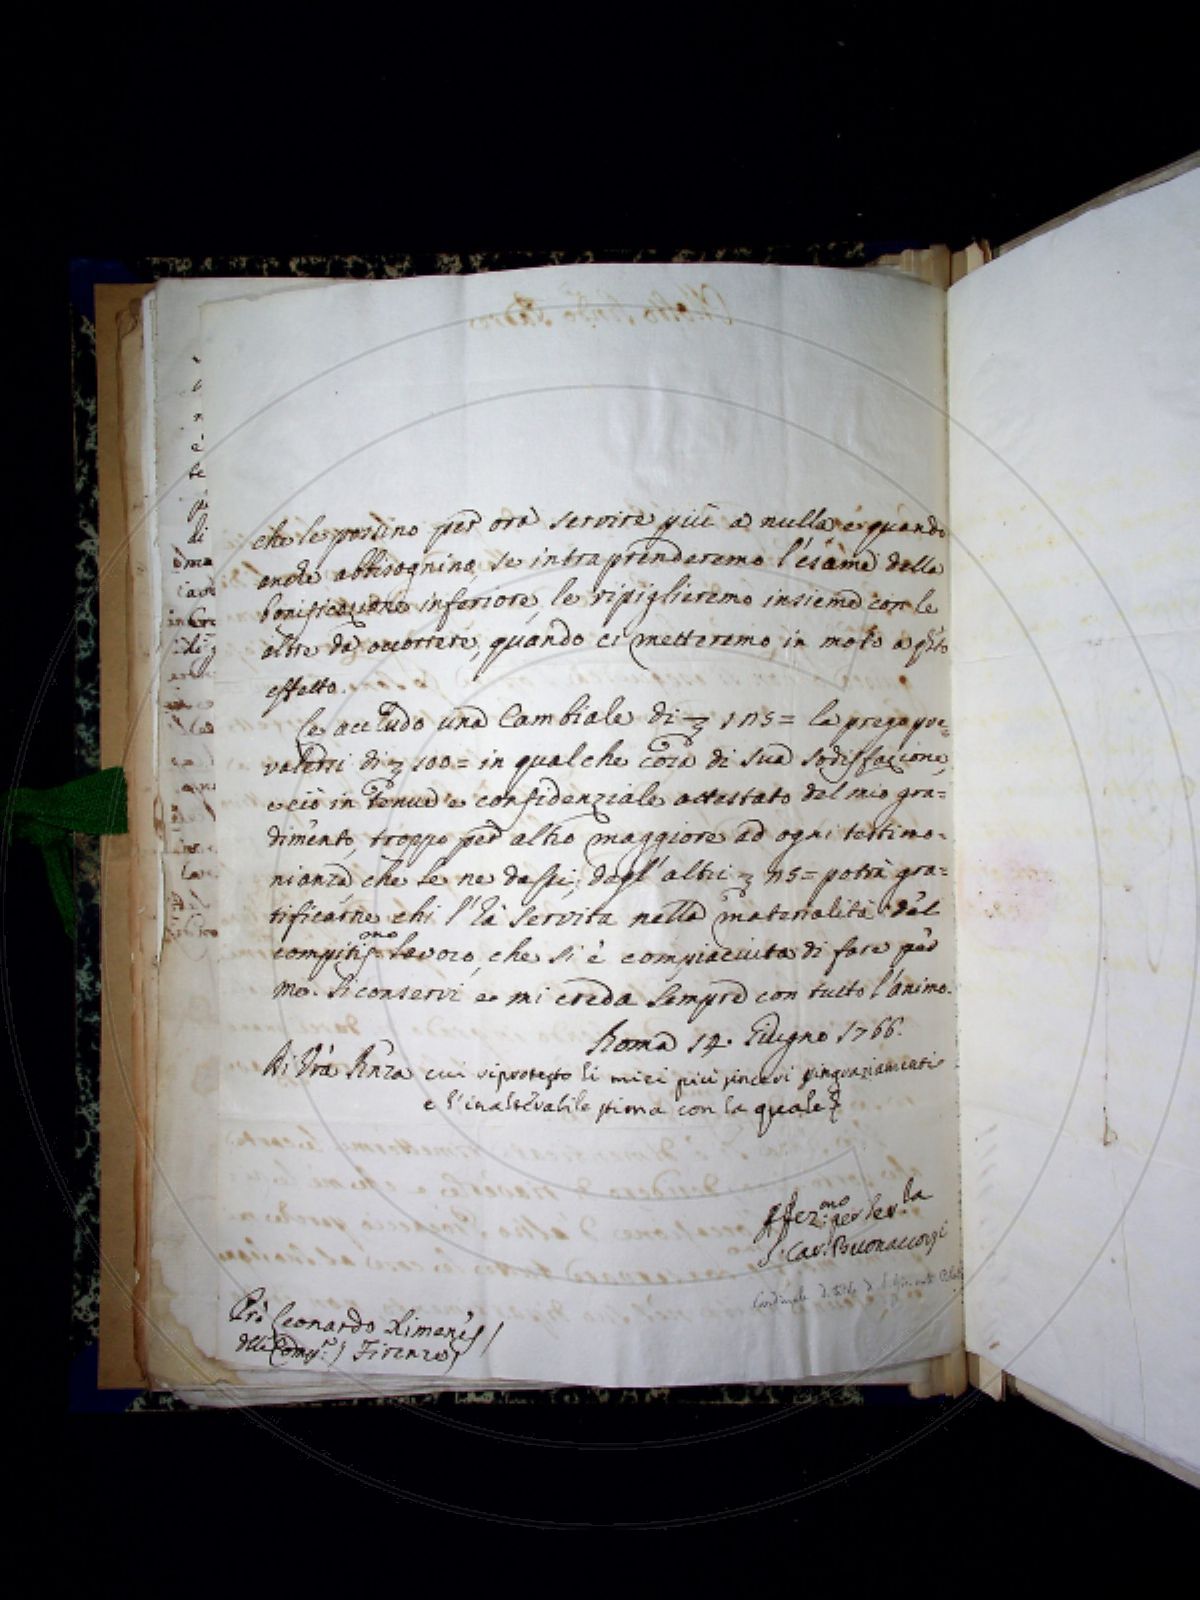 che le possino per ora servire più a nulla, e quando
anche abbisognino, se intraprenderemo l'esame della
bonificazione inferiore, le ripiglieremo insieme con le
altre da occorrere, quando ci metteremo in moto a q̃sto
effetto.
Le accludo una Cambiale di 115= la prego pre=
valersi di 100= in qualche cosa di sua sodisfazione,
e ciò in tenue e confidenziale attestato del mio gra=
dimento, troppo per altro maggiore ad ogni testimo=
nianza che se ne dassi; dagl'altri 15= potrà gra=
tificarne chi l'hà servita nella materialità del
compitis.mo lavoro, che si è compiaciuta di fare per
me. Si conservi, e mi creda sempre con tutto l'animo.
Roma 14. Giugno 1766.
Di Vrã Rñza cui riprotesto li miei più sinceri ringraziamenti
e l'inalterabile stima con la quale
Affez.mo per ser.la
S. Car. Buonaccorsi
Prẽ Leonardo Ximenes
della Comp.a) Firenze)